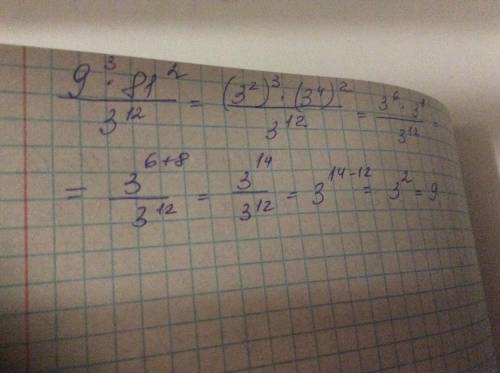 9³ · 81² / 3¹² = (3²)³ · (3⁴)² / 3¹² = 3⁶ · 3⁸ / 3¹² =
= 3⁶⁺⁸ / 3¹² = 3¹⁴ / 3¹² = 3¹⁴⁻¹² = 3² = 9